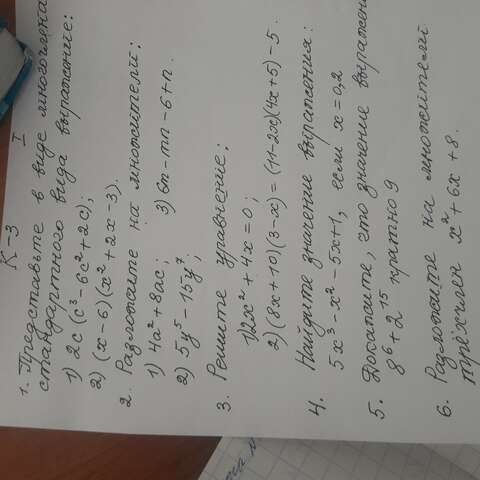 К-3 I
1. Представьте в виде многочлена
стандартного вида выражение:
1) 2c(c³-6c²+2c);
2) (x-6)(x²+2x-3).
2. Разложите на множители:
1) 4a²+8ac; 3) 6n-mn-6+n.
2) 5y⁵-15y⁷;
3. Решите уравнение:
1) 2x²+4x=0;
2) (8x+10)(3-x)=(11-2x)(4x+5)-5.
4. Найдите значение выражения:
5x³-x²-5x+1, если x=0,2
5. Докажите, что значение выражен
8⁶+2¹⁵ кратно 9
6. Разложите на множители
трёхчлен x²+6x+8.